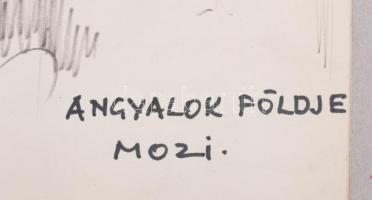 ANGYALOK FÖLDJE
MOZi.